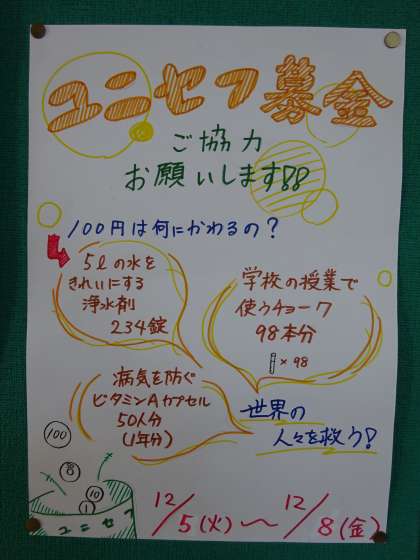 ユニセフ募金
ご協力
お願いします!!
100円は何にかわるの?
5ℓの水を
きれいにする
浄水剤
234錠
学校の授業で
使うチョーク
98本分
×98
病気を防ぐ
ビタミンAカプセル
50人分
(1年分)
世界の
人々を救う!
100
8
10
1
ユニセフ
12/5(火)〜12/8(金)